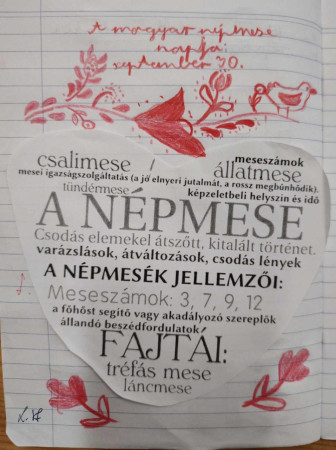 A magyar népmese
napja
szeptember 30.
csalimese / állatmese
meseszámok
mesei igazságszolgáltatás (a jó elnyeri jutalmát, a rossz megbűnhődik).
tündérmese
képzeletbeli helyszín és idő
A NÉPMESE
Csodás elemekel átszőtt, kitalált történet.
varázslások, átváltozások, csodás lények
A NÉPMESÉK JELLEMZŐI:
Meseszámok: 3, 7, 9, 12
a főhőst segítő vagy akadályozó szereplők
állandó beszédfordulatok
FAJTÁI:
tréfás mese
láncmese